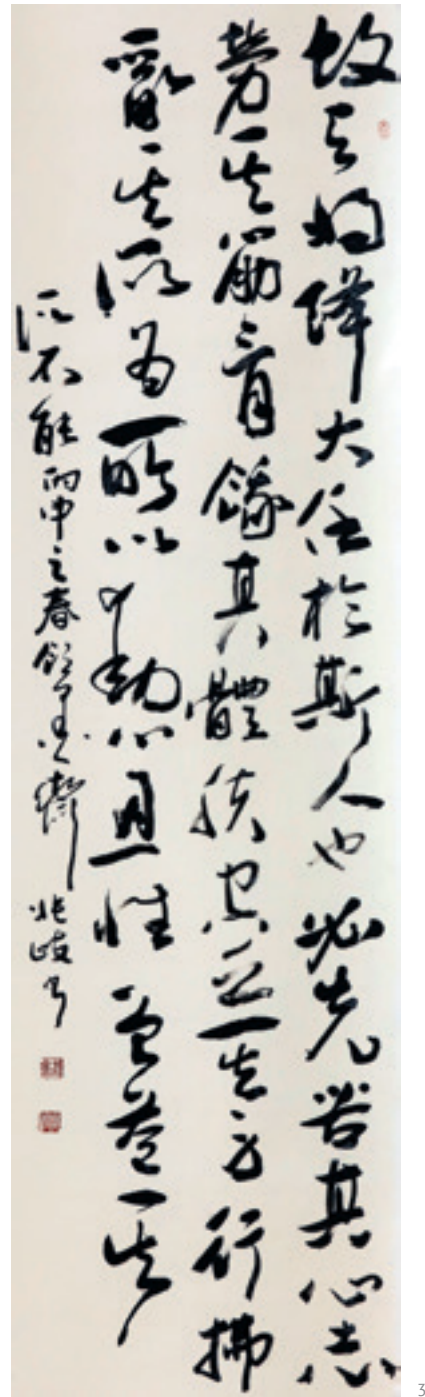 故天將降大任於斯人也必先苦其心志
勞其筋骨餓其體膚空乏其身行拂
亂其所為所以動心忍性曾益其
所不能 丙申之春 兆岐書
3